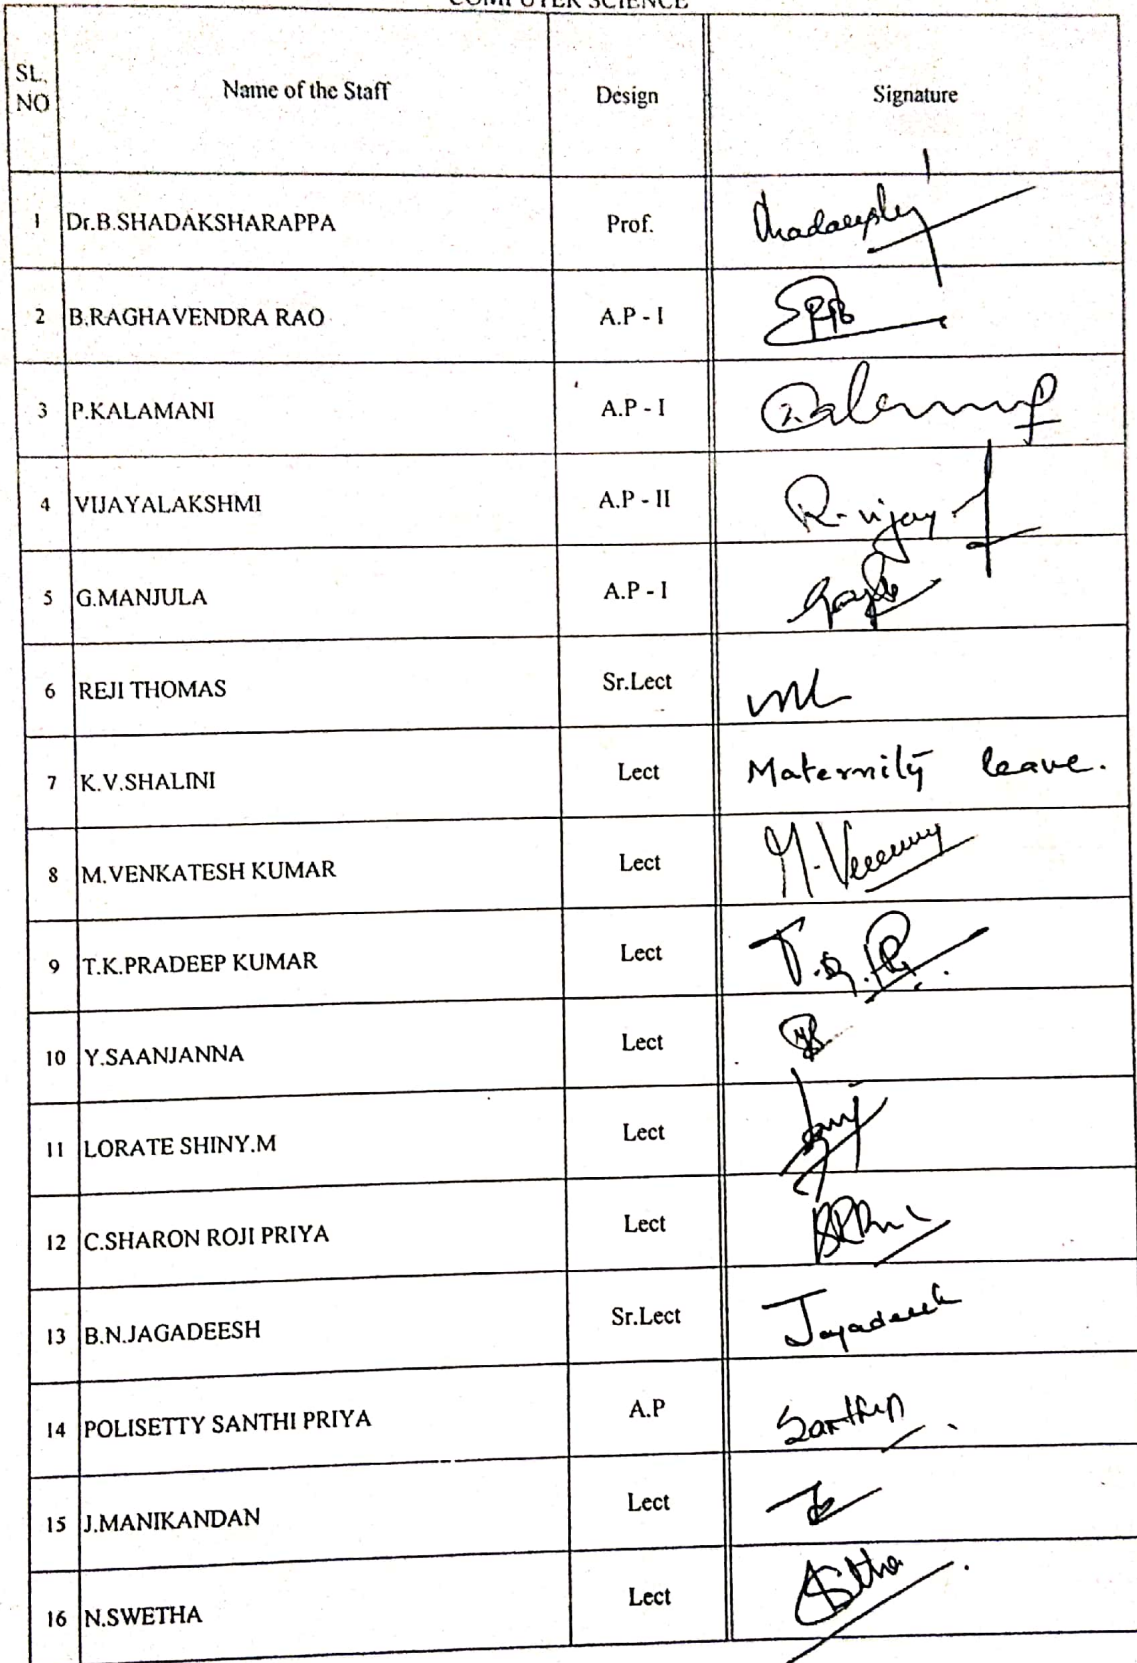 COMPUTER SCIENCE
SL. NO Name of the Staff Design Signature
1 Dr.B.SHADAKSHARAPPA Prof.
2 B.RAGHAVENDRA RAO A.P - I
3 P.KALAMANI A.P - I
4 VIJAYALAKSHMI A.P - II R. vijay
5 G.MANJULA A.P - I
6 REJI THOMAS Sr.Lect
7 K.V.SHALINI Lect Maternity leave.
8 M.VENKATESH KUMAR Lect
9 T.K.PRADEEP KUMAR Lect
10 Y.SAANJANNA Lect
11 LORATE SHINY.M Lect
12 C.SHARON ROJI PRIYA Lect
13 B.N.JAGADEESH Sr.Lect
14 POLISETTY SANTHI PRIYA A.P
15 J.MANIKANDAN Lect
16 N.SWETHA Lect